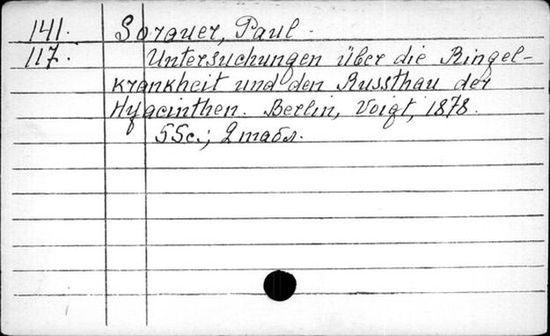 141. Sorauer, Paul.
117. Untersuchungen über die Ringel-
krankheit und den Russthau der
Hyacinthen. Berlin, Voigt, 1878.
55с.; 2 табл.